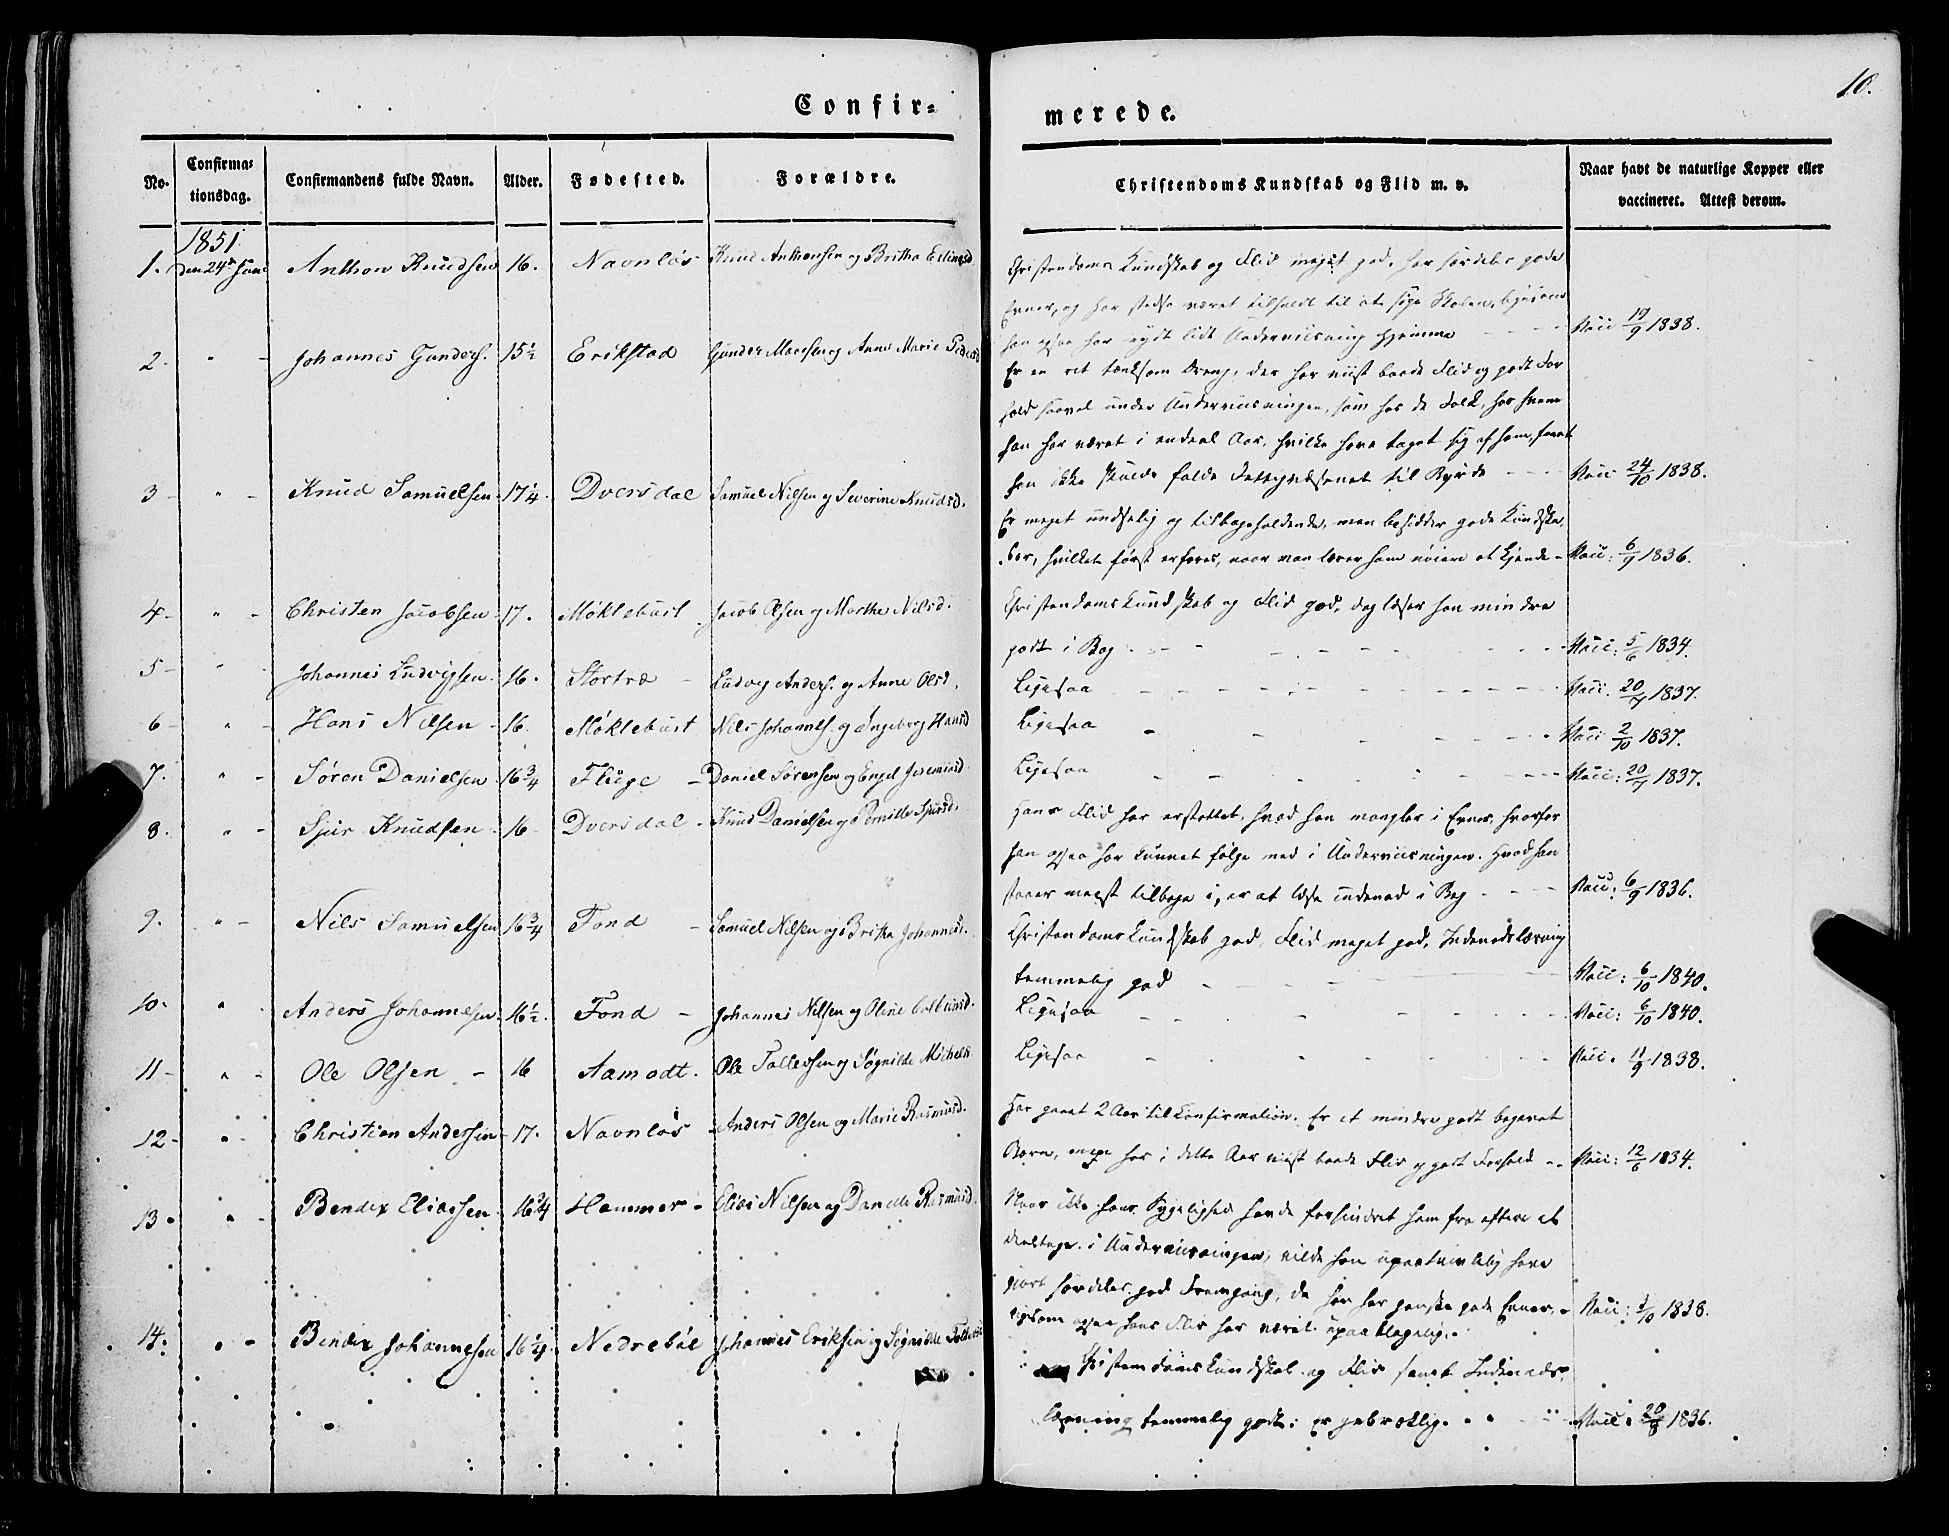 10.
Confir=
merede.
No.
Confirma=
tionsdag.
Confirmandens fulde Navn.
Alder.
Fødested.
Forældre.
Christendoms Kundskab og Flid m. v.
Naar havt de naturlige Kopper eller
vaccineret. Attest derom.
1851
1. den 24de Anthon Knudsen 16. Navnløs Knud Anthonsen og Britha Ellingsd.
Christendoms Kundskab og Flid meget god, har særdeles gode
Evner, og har stedse været tilholdt til at søge Skolen,
han ogsaa har nydt lidt Underviisning hjemme - - - Vacc 19/9 1838.
2 - " - Johannes Gunders. 15 1/2 Erikstad Gunder og Anne Marie
Er en ret tænksom Dreng, der har viist baade Flid og godt For
hold saavel under Underviisningen, som hos de Folk, hos hvem
han har været i endeel Aar, hvilke have taget sig af ham, forat
han ikke skulde falde til Byrde - - - Vacc 24/10 1838.
3 - " - Knud Samuelsen 17 1/4. Dversdal Samuel Nilsen og Severine Knudsd.
Er meget undselig og tilbageholdende, men besidder gode Kundska,
ber, hvilket først erfares, naar man lærer ham nøiere at kjende - Vacc: 6/9 1836.
4 - " - Christen Jacobsen 17. Møklebust Jacob Olsen og Marthe Nilsd.
Christendoms Kundskab og Flid god, dog læser han mindre
godt i Bog - - - Vacc: 5/6 1834.
5 - " - Johannes Ludvigsen 16. Stortræ - Ludvig Anders. og Anne Olsd.
Ligesaa - - - Vacc. 20/9 1837.
6 - " - Hans Nilsen - 16. Møklebust Nils Johannes. og Ingeborg Hansd
Ligesaa - - - Vacc 2/10 1837.
7. " - Søren Danielsen 16 3/4 Fluge - Daniel Sørensen og Engel Jeremiasd.
Ligesaa - - - Vacc: 20/9 1837.
8. " - Sjur Knudsen 16 - Dversdal - Knud Danielsen og Pernille Sjursd.
Hans Flid har erstattet, hvad han mangler i Evner, hvorfor
han ogsaa har kunnet følge med i Underviisningen. Hvad han
staaer meest tilbage i, er at læse indenad i Bog - - - Vacc: 6/9 1836.
9. " - Nils Samuelsen 16 3/4 Fond - Samuel Nilsen og Britha Johannesd.
Christendoms Kundskab god, Flid meget god, Indenadslæsning
temmelig god - - - Vacc: 6/10 1840.
10. " Anders Johannesen 16 1/2. Fond - Johannes Nilsen og Oline
Ligesaa - - - Vacc: 6/10 1840.
11 - " - Ole Olsen - 16 Aamodt. Ole Tollefsen og Søgnilde Michels
Ligesaa - - - Vacc. 11/9 1838.
12 - " - Christian Andersen 17. Navnløs - Anders Olsen og Marie Rasmusd.
Har gaaet 2 Aar til Confirmation. Er et mindre godt begavet
Barn, men har i dette Aar viist baade Flid og godt Forhold - - Vacc: 12/6 1834.
13. " - Bendix Eliassen 16 3/4 Hammer - Elias Nilsen og Danelle Rasmusd.
Naar ikke hans Sygelighed havde forhindret ham fra oftere at
deeltage i Underviisningen, vilde han upaatvivlelig have
gjort særdeles god Fremgang, da han har ganske gode Evner, -
ligesom ogsaa hans Flid har været upaaklagelig. - Vacc: 1/10 1838.
14. " - Bendix Johannesen 16 1/4. Nedrebøe Johannes Eriksen og Søgnilde
Christendoms Kundskab og Flid samt Indenads,
læsning temmelig godt. Er gebræklig. - - - Vacc: 20/8 1836.